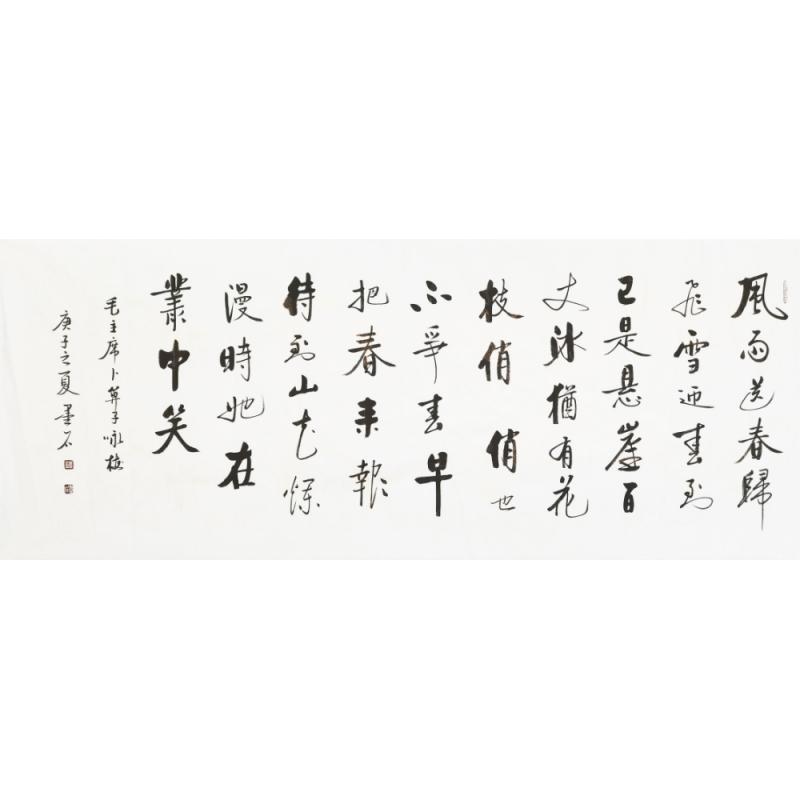 風雨送春歸
飛雪迎春到
已是悬崖百
丈冰猶有花
枝俏 俏也
不爭春早
把春来報
待到山花爛
漫時她在
叢中笑
毛主席卜算子咏梅
庚子之夏墨石